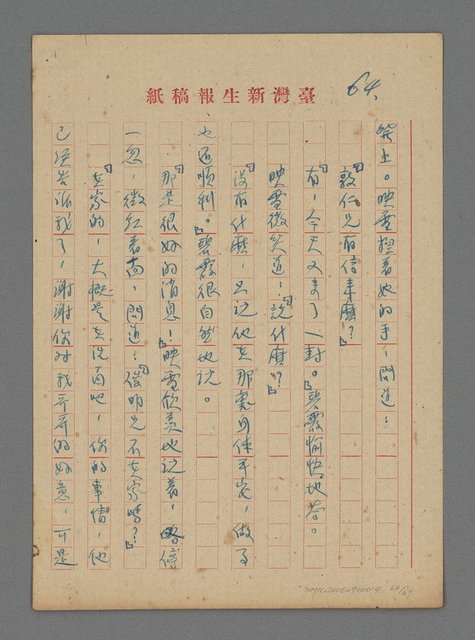 64.
紙稿報生新灣臺
凳上。映雪握着她的手，問道：
「敦仁兄有信來麼？」
「有，今天又來了一封。」碧霞愉快地答。
映雪微笑道：「說什麼？」
「沒有什麼，只說他在那裏身体平安，做事
也還順利。」碧霞很自然地說。
「那是很好的消息！」映雪欣羨地說着，略停
一忽，微紅着面，問道：「俊明兄不在家嗎？」
「在家的，大概是在洗面吧，你的事情，他
已經告訴我了，謝謝你對我哥哥的好意，可是
64/67